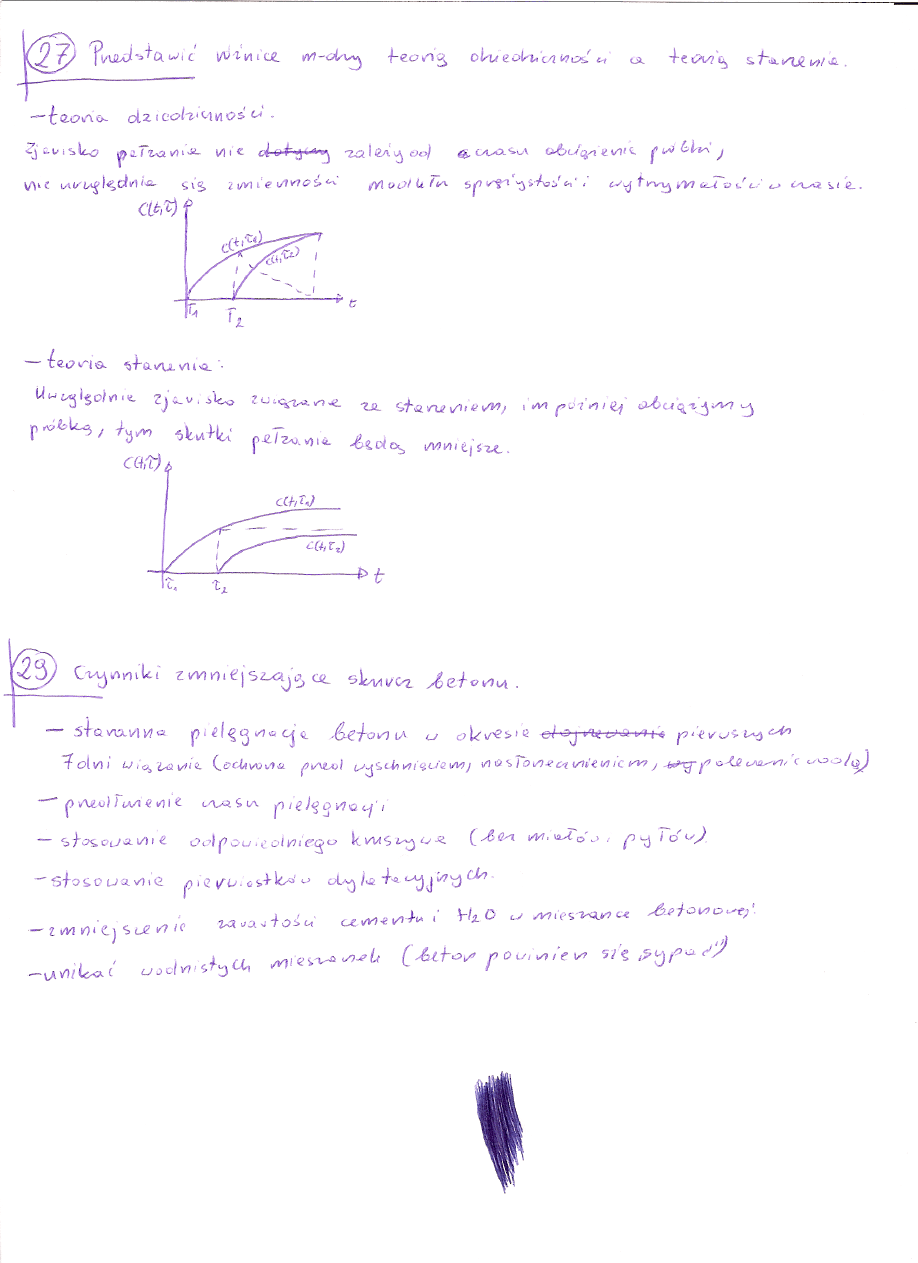 27 Przedstawić różnice m-dzy teorią dziedziczności a teorią starzenia.
– teoria dziedziczności.
Zjawisko pełzania nie dotyczy zależy od czasu obciążenia próbki,
nie uwzględnia się zmienności modułu sprężystości i wytrzymałości w czasie.
C(t,τ)
C(t,τ₁)
C(t,τ₂)
t
τ₁
τ₂
– teoria starzenia:
Uwzględnia zjawisko związane ze starzeniem, im później obciążymy
próbkę, tym skutki pełzania będą mniejsze.
C(t,τ)
C(t,τ₁)
C(t,τ₂)
t
τ₁
τ₂
29 Czynniki zmniejszające skurcz betonu.
– staranna pielęgnacja betonu w okresie dojrzewania pierwszych
7 dni wiązania (ochrona przed wyschnięciem, nasłonecznieniem, wy polewanie wodą)
– przedłużenie czasu pielęgnacji
– stosowanie odpowiedniego kruszywa (bez miałów i pyłów)
– stosowanie pierwiastków dylatacyjnych.
– zmniejszenie zawartości cementu i H₂O w mieszance betonowej.
– unikać wodnistych mieszanek (beton powinien się „sypać")